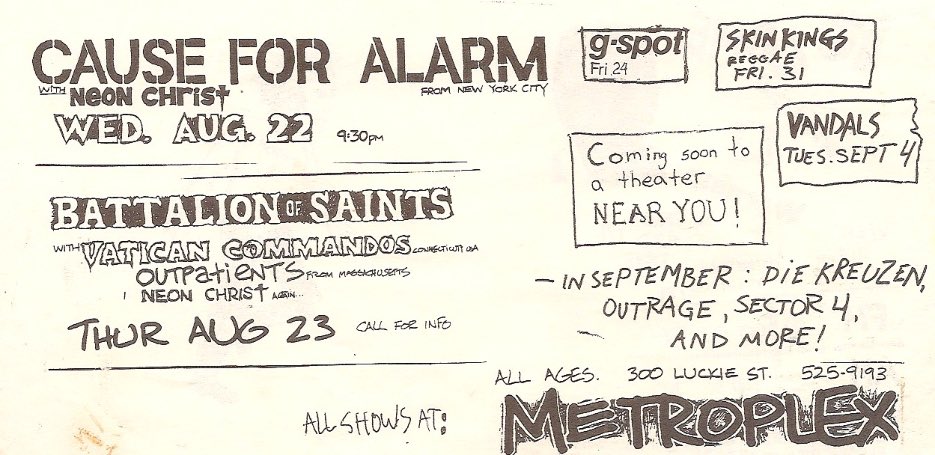 CAUSE FOR ALARM
WITH NEON CHRIST FROM NEW YORK CITY
WED. AUG. 22 9:30PM
BATTALION OF SAINTS
WITH VATICAN COMMANDOS CONNECTICUT, USA
OUTPATIENTS FROM MASSACHUSETTS
NEON CHRIST AGAIN...
THUR AUG 23 CALL FOR INFO
ALL SHOWS AT:
g-spot
Fri 24
SKINKINGS
REGGAE
FRI. 31
VANDALS
TUES. SEPT 4
Coming soon to
a theater
NEAR YOU!
— IN SEPTEMBER: DIE KREUZEN,
OUTRAGE, SECTOR 4,
AND MORE!
ALL AGES. 300 LUCKIE ST. 525-9193
METROPLEX